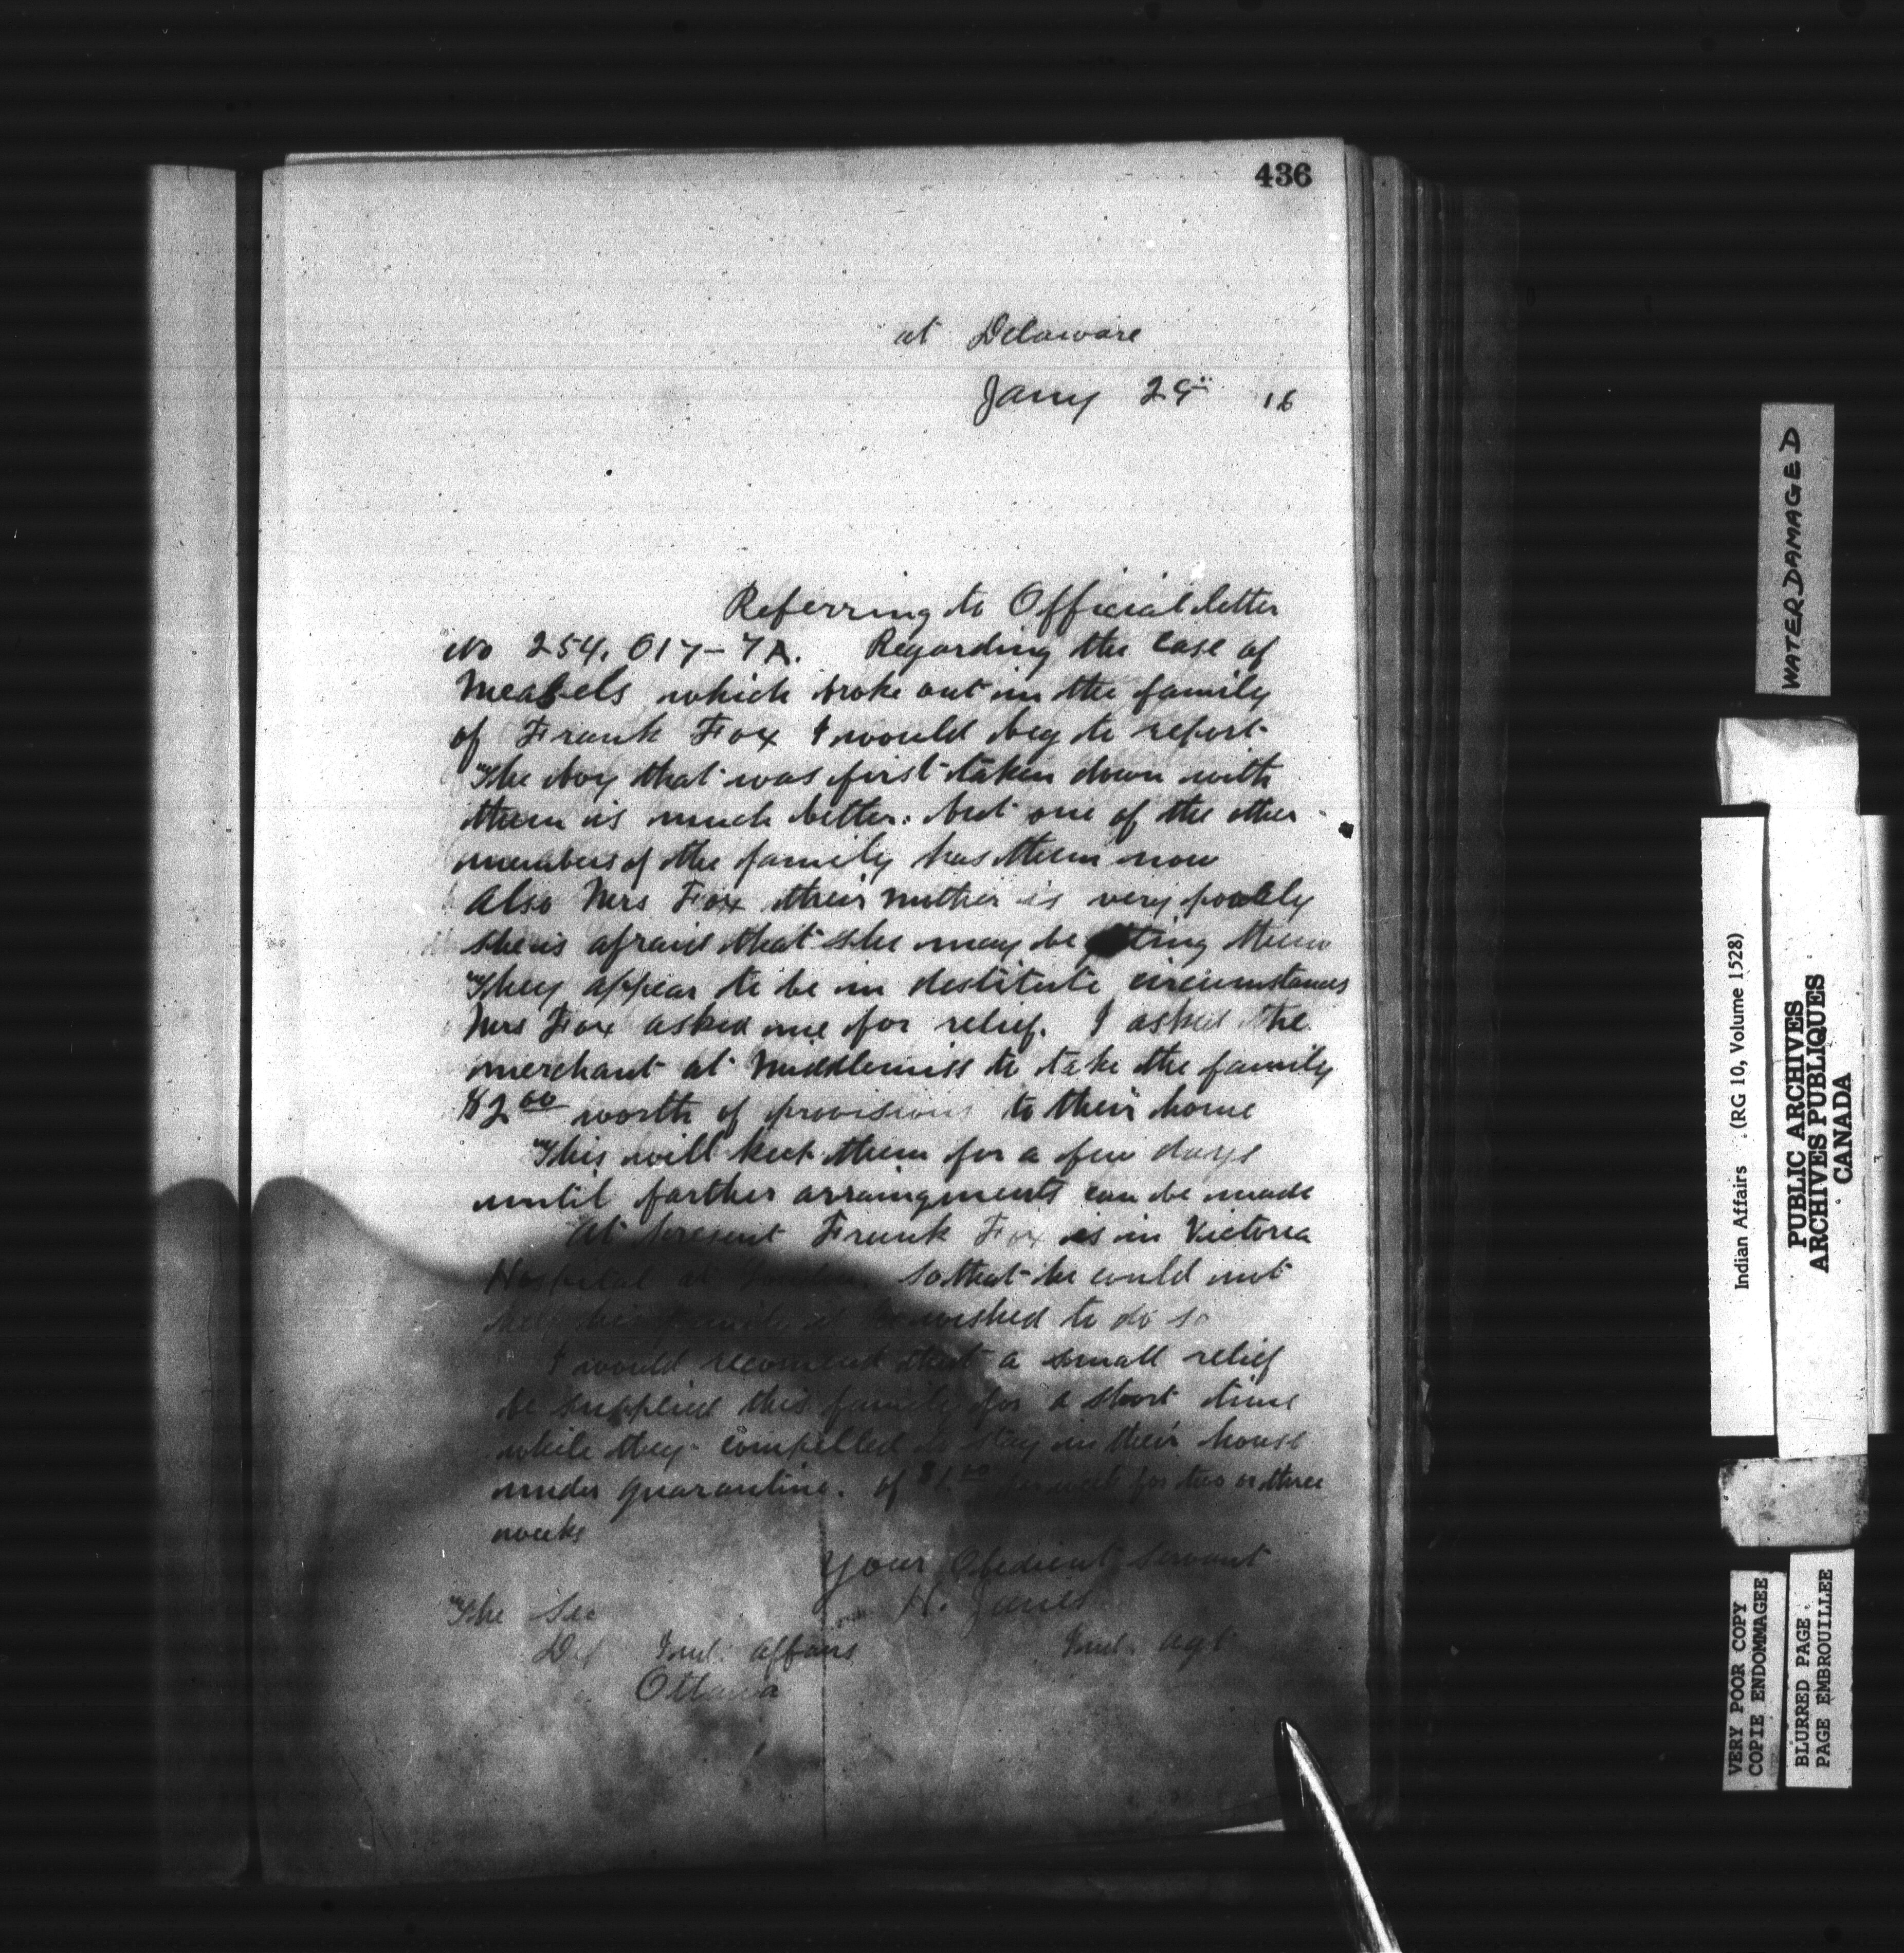 436
at Delaware
Jany 29th 16
Referring to Official letter
No 254,017-7A. Regarding the case of
Measels which broke out in the family
of Frank Fox I would beg to report
The boy that was first taken down with
them is much better. but one of the other
members of the family has them now
Also Mrs Fox their mother is very poorly
she is afraid that she may be getting them
They appear to be in destitute circumstances
Mrs Fox asked me for relief. I asked the
merchant at Middlemiss to take the family
$2.00 worth of provisions to their home
This will keep them for a few days
until farther arraingments can be made
At present Frank Fox is in Victoria
Hospital at London so that he could not
help his family if he wished to do so
I would recomend that a small relief
be supplied this family for a short time
while they compelled to stay in their house
under quarantine. of $1.00 per week for two or three
weeks
Your Obedient Servant
H. Janes
The Sec
Ind. Agt
Dep Ind. Affairs
Ottawa
WATER DAMAGED
Indian Affairs . (RG 10, Volume 1528)
PUBLIC ARCHIVES
ARCHIVES PUBLIQUES
CANADA
VERY POOR COPY
COPIE ENDOMMAGEE
BLURRED PAGE
PAGE EMBROUILLEE